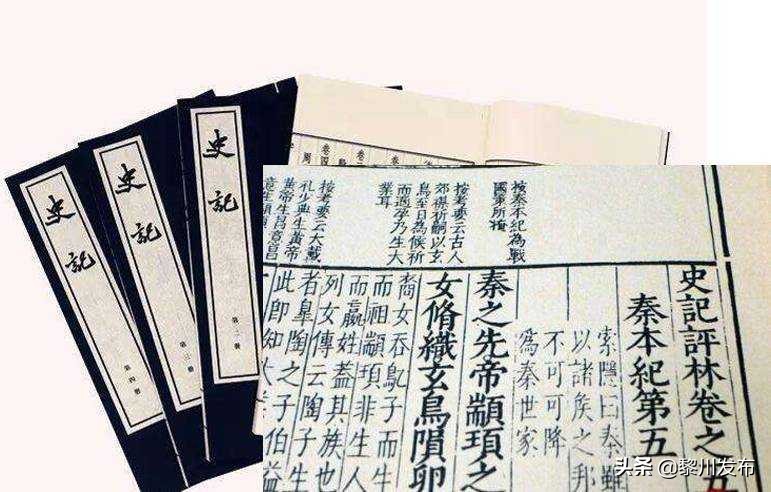 史記
第四冊
史記
第三冊
史記
第二冊
卷四
周
史記評林卷之五
秦本紀第五
索隱曰秦雖
以諸矦之邦
不可可降
爲秦世家
秦之先帝顓頊之
女脩織玄鳥隕卵
裔女吞鳦子而生
而祖顓頊非生人
而嬴姓蓋其族也
列女傳云陶子生
者皐陶之子伯益
此即知大
按秦本紀為戰
國策所
按考要云古人
郊禖祈嗣以玄
鳥至日為候祈
而遇孕乃生大
業耳
按考要云大戴
孔少典生黃帝
黃帝生昌意昌
意生顓頊
头条 @黎川发布